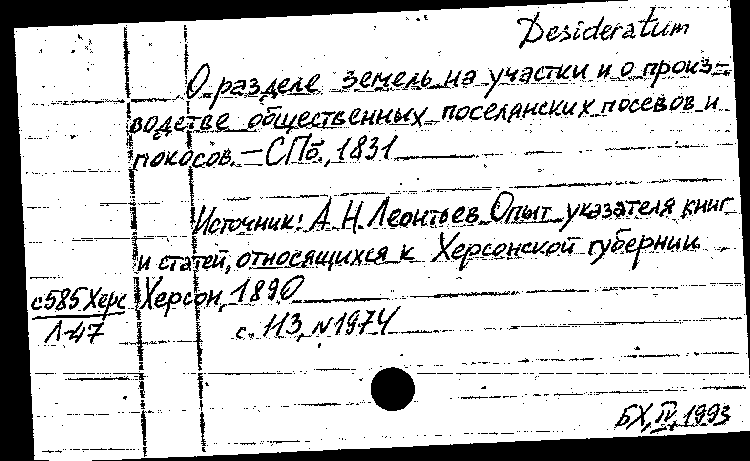 Desideratum
О разделе земель на участки и о произ=
водстве общественных поселанских посевов и
покосов. — СПб., 1831
Источник: А. Н. Леонтьев Опыт указателя книг
и статей, относящихся к Херсонской губернии
с585Херс Херсон, 1890
Л-47 с. 113, N 1974
БХ, IV, 1993